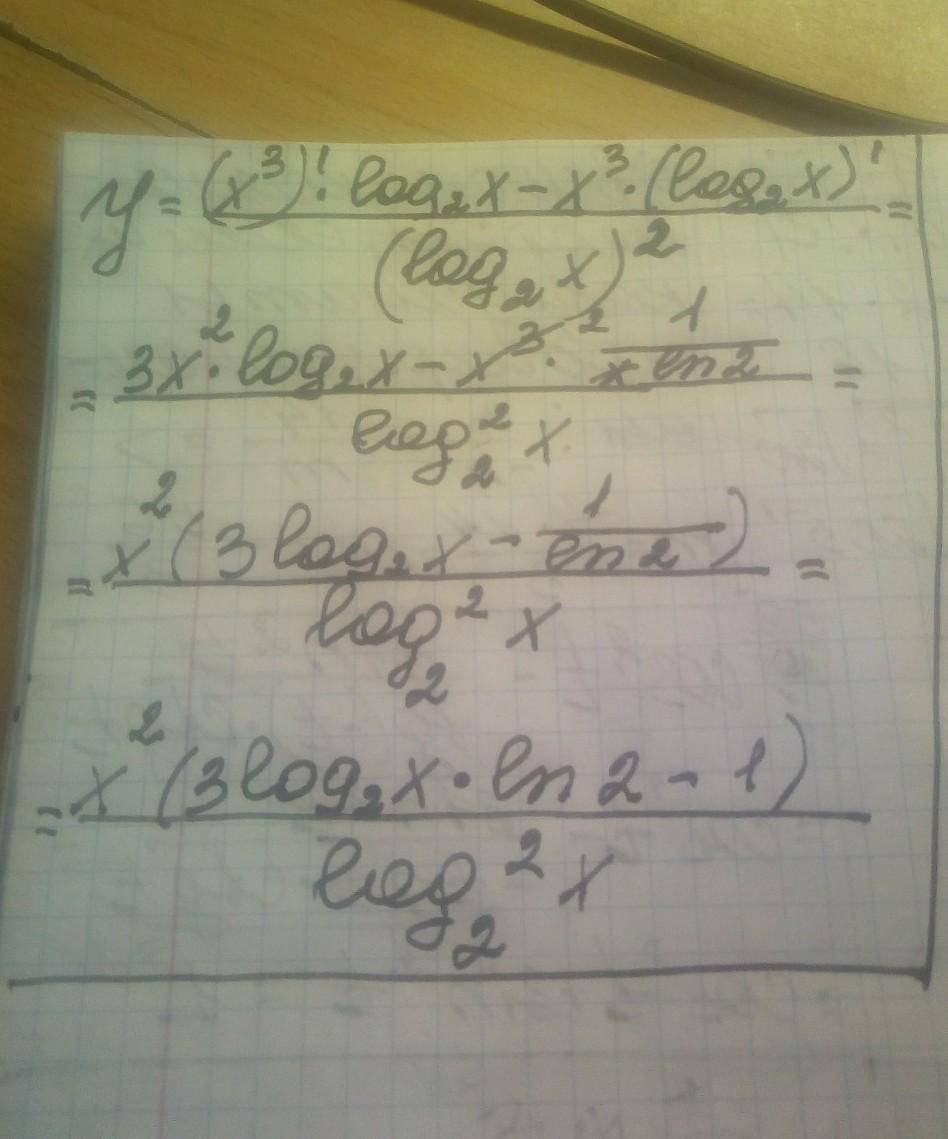 y = \frac{(x^3)' \cdot \log_2 x - x^3 \cdot (\log_2 x)'}{(\log_2 x)^2} =
= \frac{3x^2 \cdot \log_2 x - x^{3\,2} \cdot \frac{1}{x \ln 2}}{\log_2^2 x} =
= \frac{x^2 (3 \log_2 x - \frac{1}{\ln 2})}{\log_2^2 x} =
= \frac{x^2 (3 \log_2 x \cdot \ln 2 - 1)}{\log_2^2 x}